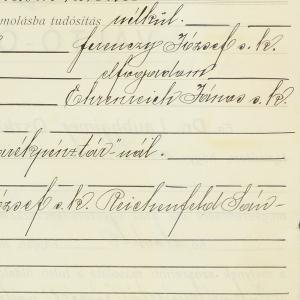 molásba tudósítás nélkül.
Ferenczy József s. k.
elfogadom
Ehrenreich János s. k.
arékpénztár"-nál.
ózsef s. k. Reichenfeld Sán-